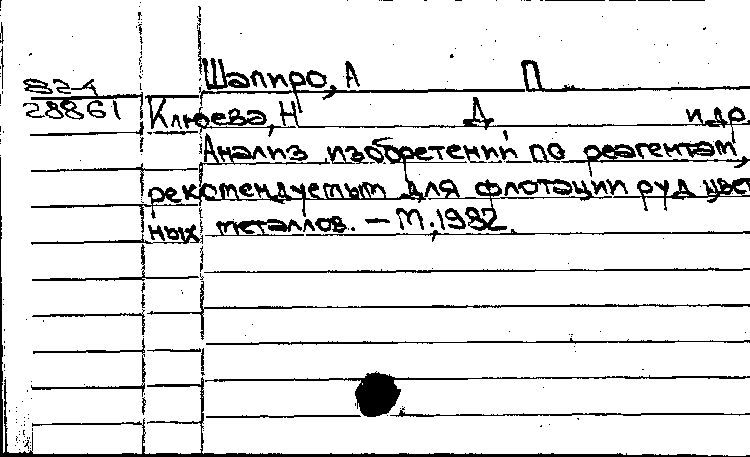 Шапиро, А П
82-4
28861 Клюева, Н Д и др.
Анализ изобретений по реагентам,
рекомендуемым для флотации руд цвет
ных металлов. — М., 1982.